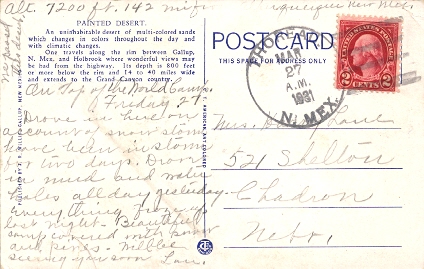 Alt. 7200 ft. 142 mi.
New Mex.
PAINTED DESERT.
An uninhabitable desert of multi-colored sands
which changes in colors throughout the day and
with climatic changes.
One travels along the rim between Gallup,
N. Mex. and Holbrook where wonderful views may
be had from the highway. Its depth is 800 feet
or more below the rim and 14 to 40 miles wide
and extends to the Grand Canyon country.
On Top of the World Camp.
Friday 27
Drove in here on
account of snow storm
have been in storm
for two days. Drove
in mud and water
holes all day yesterday
everything froze up
last night. Beautiful
camp covered with snow
and pines. Will be
seeing you soon
POST CARD
THIS SPACE FOR ADDRESS ONLY
MAR
27
A.M.
1931
N. MEX.
UNITED STATES POSTAGE
2 CENTS 2
Mrs. Lane
521 Shelton
Chadron
Nebr.